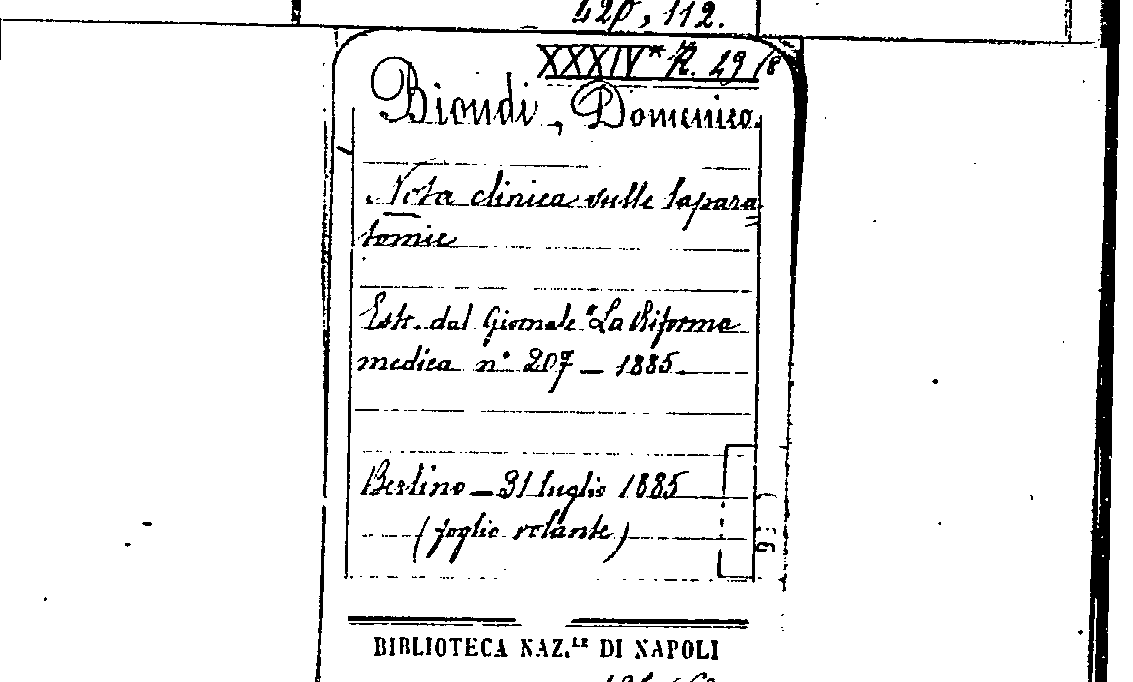 420, 112.
XXXIV* R. 29 (8
Biondi, Domenico.
Nota clinica sulle lapara
tomie
Estr. dal Giornale "La Riforma
medica n° 207 — 1885
Berlino — 31 luglio 1885
(foglio volante)
BIBLIOTECA NAZ.LE DI NAPOLI